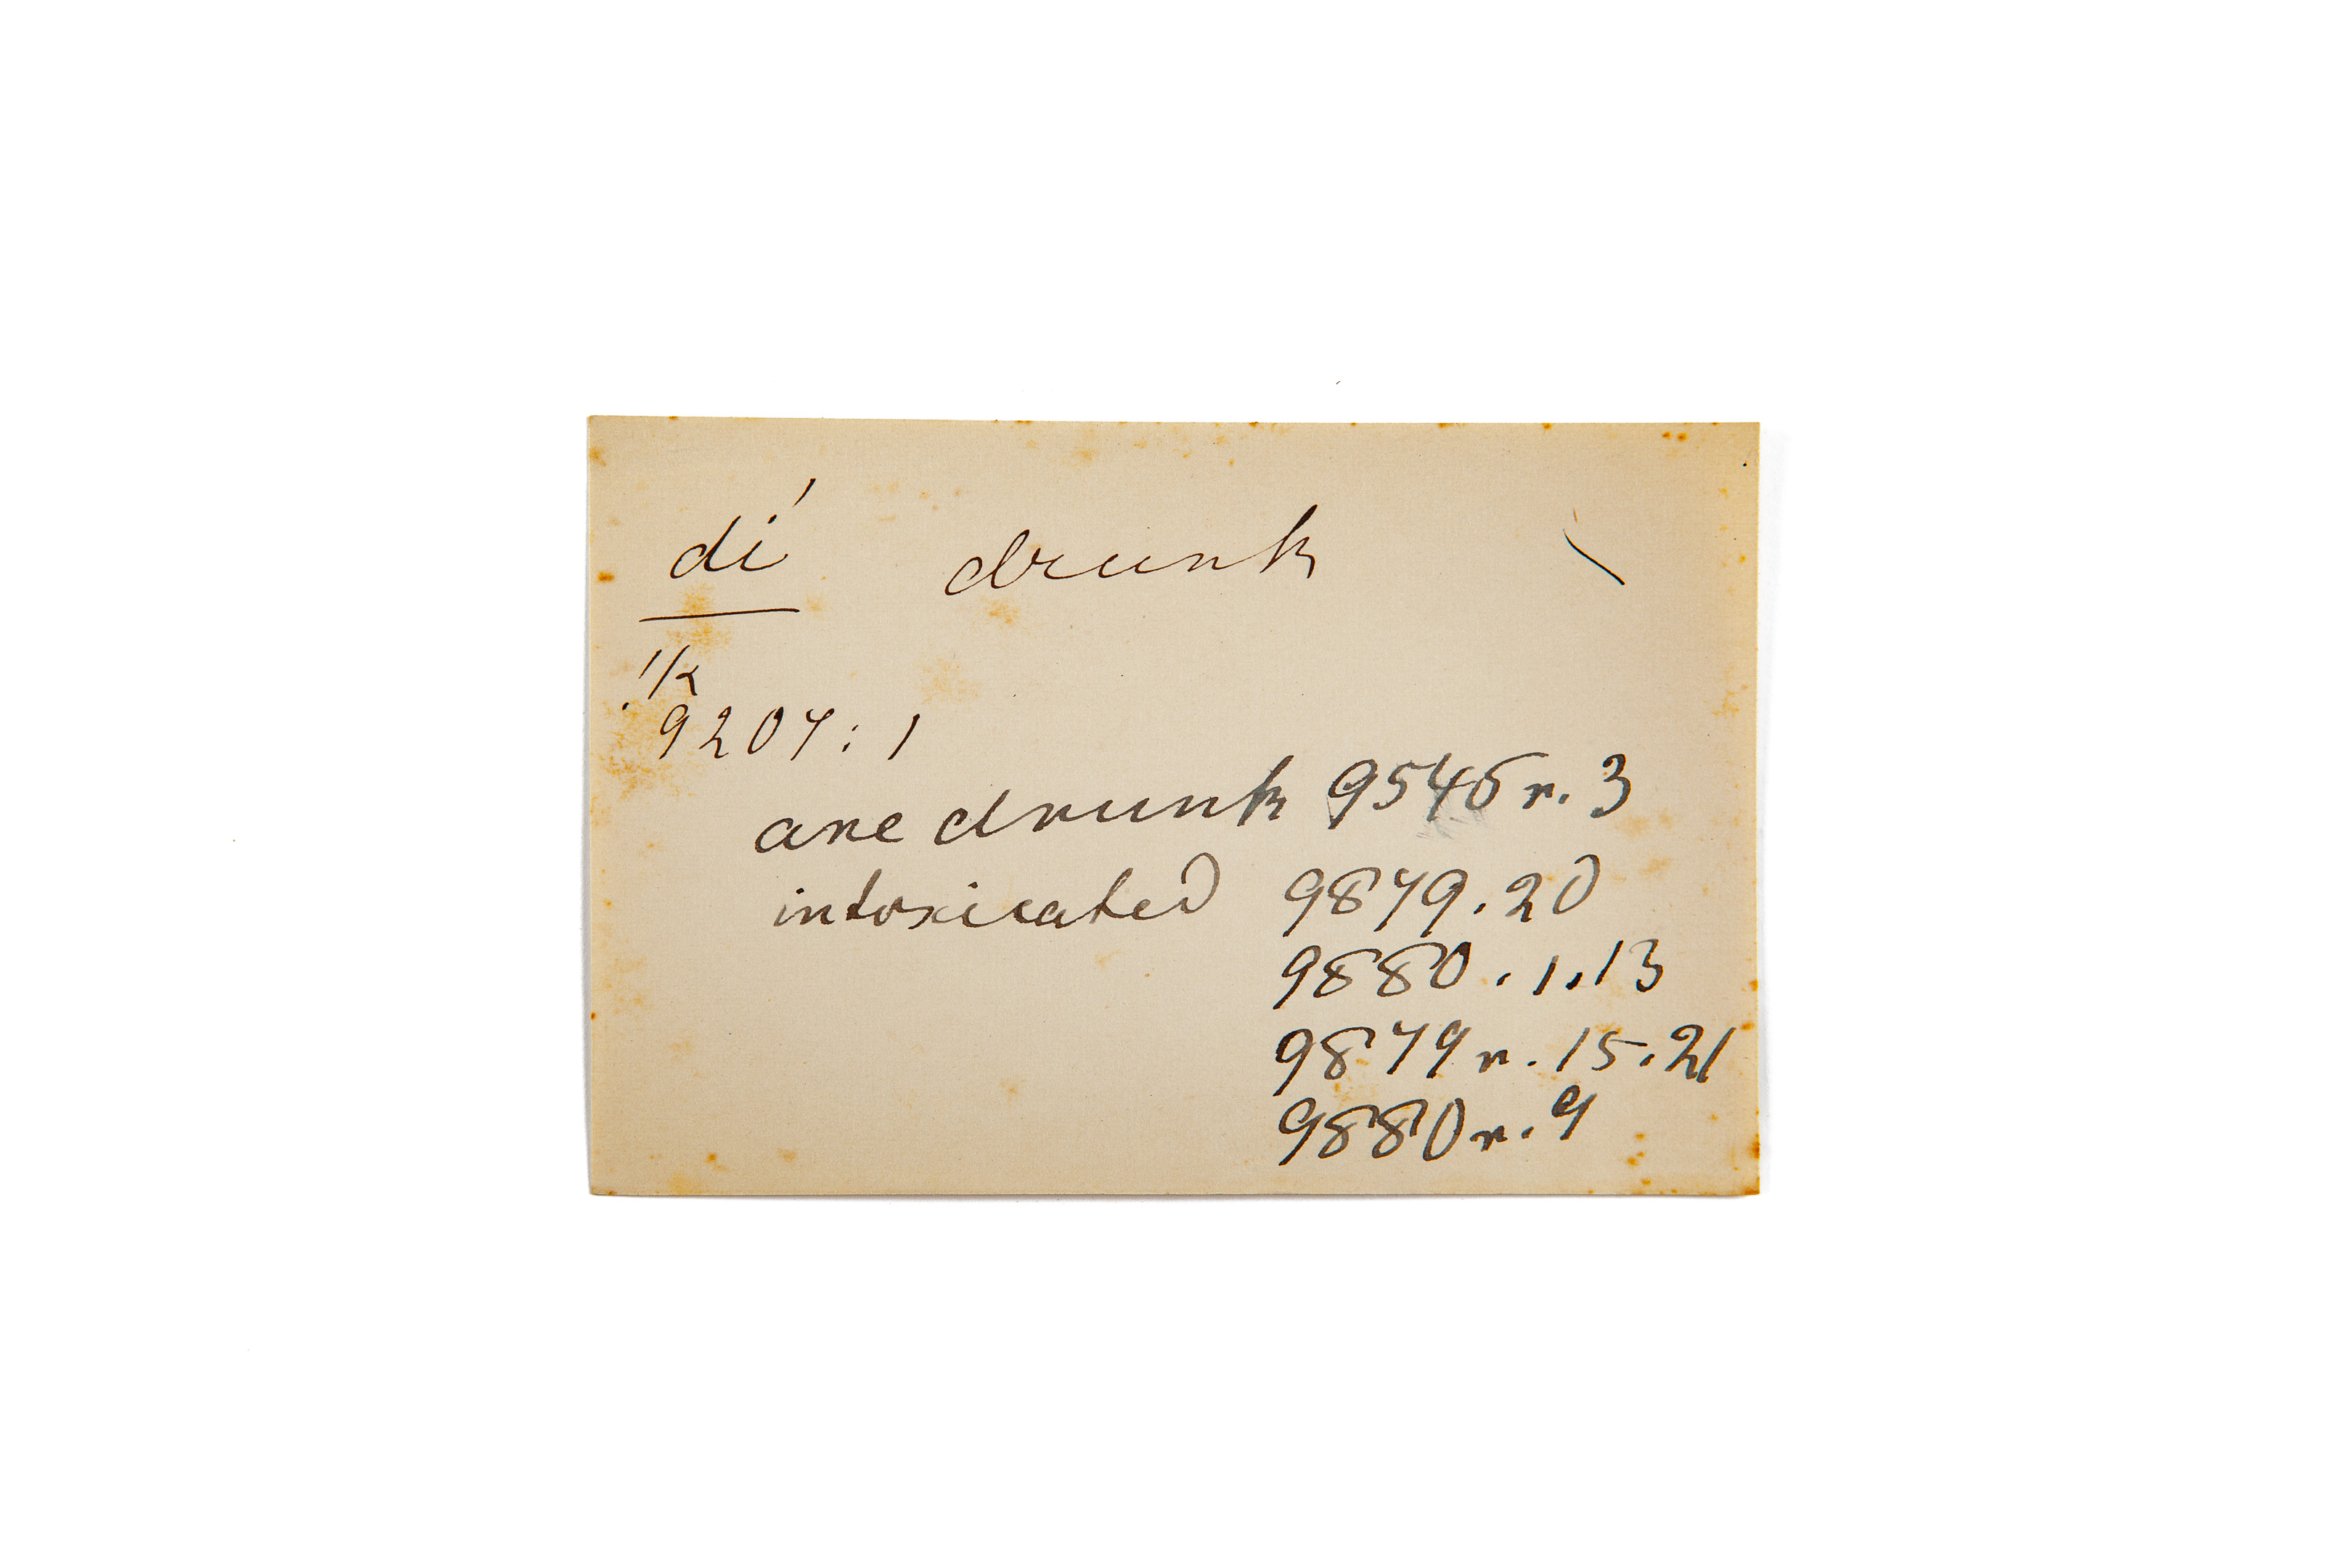 dí drunk \
!k
9207:1
are drunk 9545 r. 3
intoxicated 9879.20
9880.1.13
9879 r. 15.21
9880 r. 9